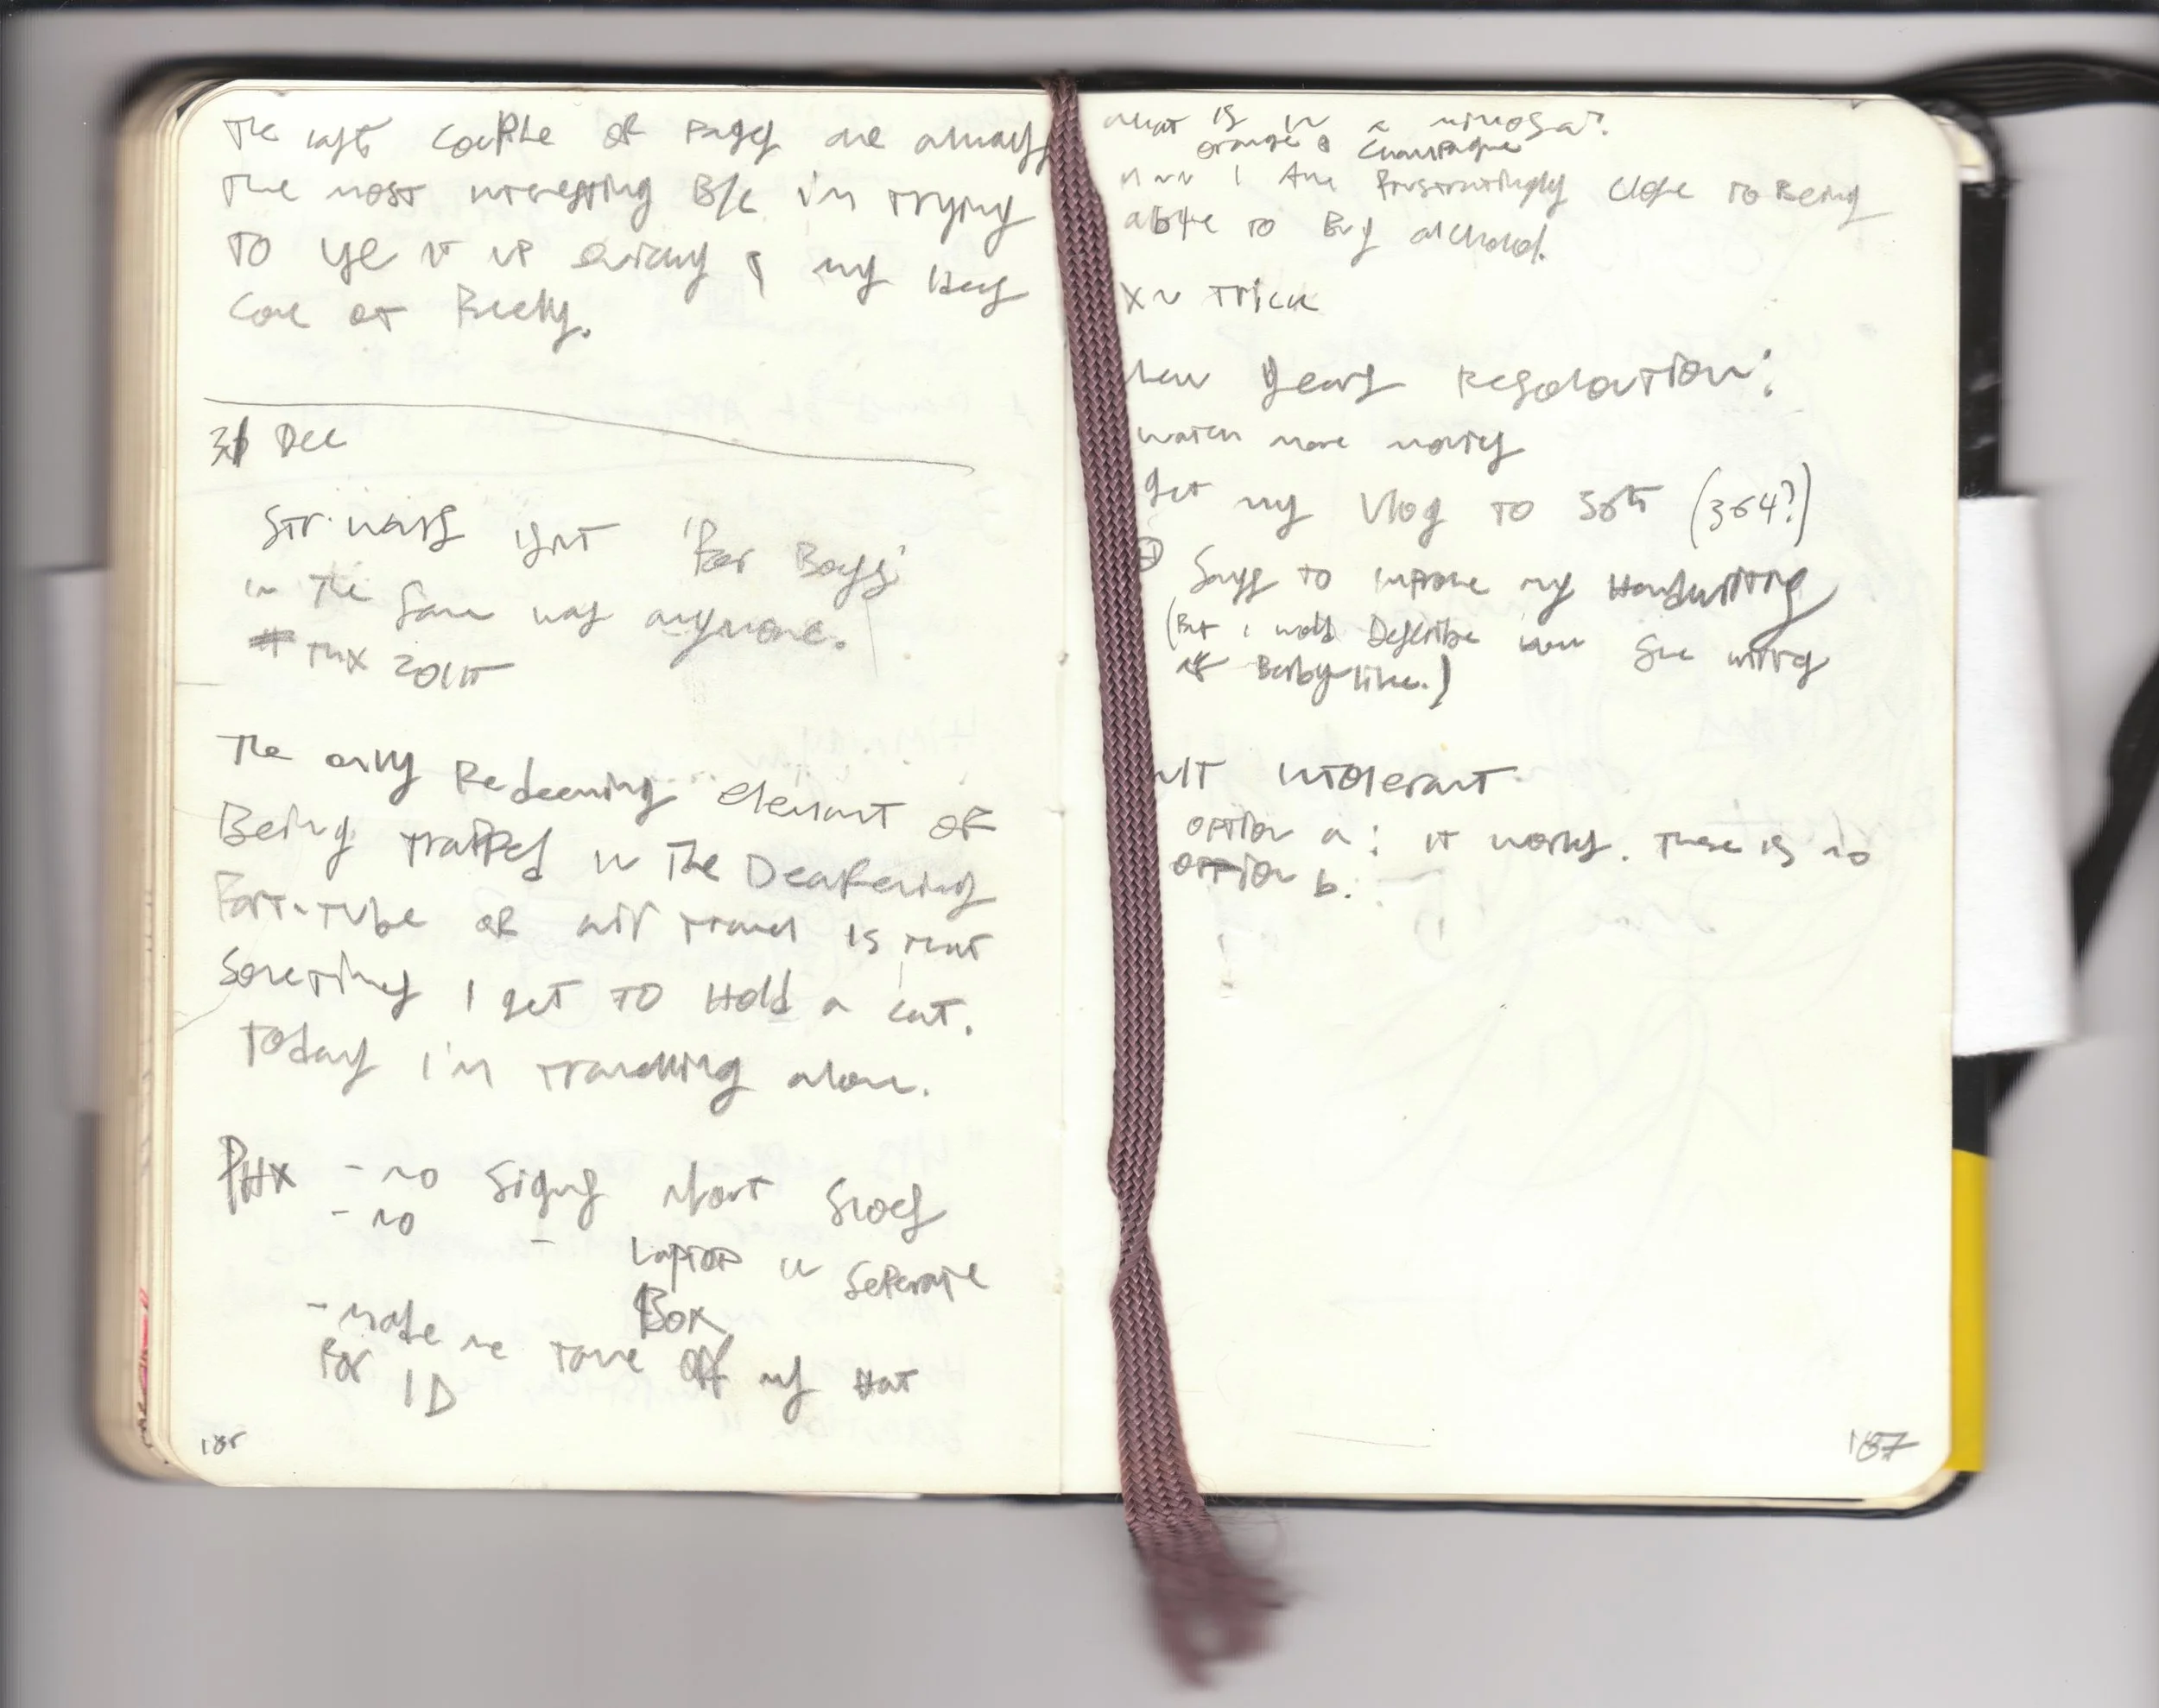 The last couple of pages are always
The most interesting B/c i'm trying
TO use it up quickly & my ideas
come at Really.
31 Dec
Star wars isn't 'For Boys'
in The same way anymore.
The only Redeeming element of
Being trapped in The Deafening
Fart-tube of air travel is that
sometimes I get TO Hold a cat.
Today i'm travelling alone.
PHX - no signs about shoes
- no
Laptop in seperate
Box
- made me take off my Hat
For ID
185
what is in a mimosa?
orange & champagne
I Am frustratingly close to Being
able to Buy alchohol.
Trick
new years Resoloution:
watch more movies
get my Vlog to 365 (364?)
says to improve my Handwriting
(But i would Describe how she writes
as Baby-like.)
intolerant.
option a: it works. There is no
option b.
187